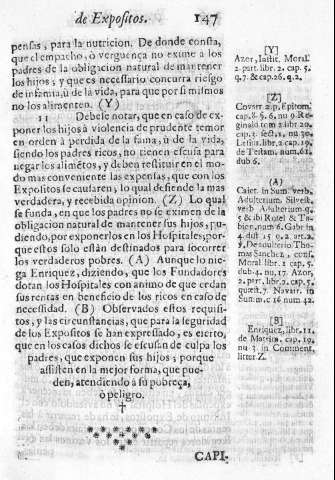 de Expositos. 147
pensas, para la nutricion. De donde consta,
que el empacho, ò verguença no exime à los
padres de la obligacion natural de mantener
los hijos; y que es necessario concurra riesgo
de infamia, ù de la vida, para que por sì mismos
no los alimenten. (Y)
11 Debese notar, que en caso de ex-
poner los hijos à violencia de prudente temor
en orden à perdida de la fama, ù de la vida,
siendo los padres ricos, no tienen escusa para
negar los alimẽtos, y deben restituir en el mo-
do mas conveniente las expensas, que con los
Expositos se causaren, lo qual desiende la mas
verdadera, y recebida opinion. (Z) Lo qual
se funda, en que los padres no se eximen de la
obligacion natural de mantener sus hijos, pu-
diendo, por exponerlos en los Hospitales, por-
que estos solo estàn destinados para socorrer
los verdaderos pobres. (A) Aunque lo nie-
ga Enriquez, diziendo, que los Fundadores
dotan los Hospitales con animo de que cedan
sus rentas en beneficio de los ricos en caso de
necessidad. (B) Observados estos requisi-
tos, y las circunstancias, que para la seguridad
de los Expositos se han expressado, es cierto,
que en los casos dichos se escusan de culpa los
padres, que exponen sus hijos; porque
assisten en la mejor forma, que pue-
den, atendiendo à su pobreça,
ò peligro.
CAPI-
[Y]
Azor, Instit. Moral.
2. part. libr. 2. cap. 5.
q. 7. & cap. 26. q. 2.
[Z]
dub 6.
(A)
Caiet. in Sum. verb.
Adulterium. Silvest.
verb Adulterium. q.
Sum. c 16 num 42.
[B]
Enriquez, libr. 11.
de Matrim. cap. 19.
nu 3. in Comment.
litter Z.